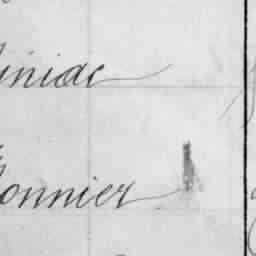 iniac
onnier